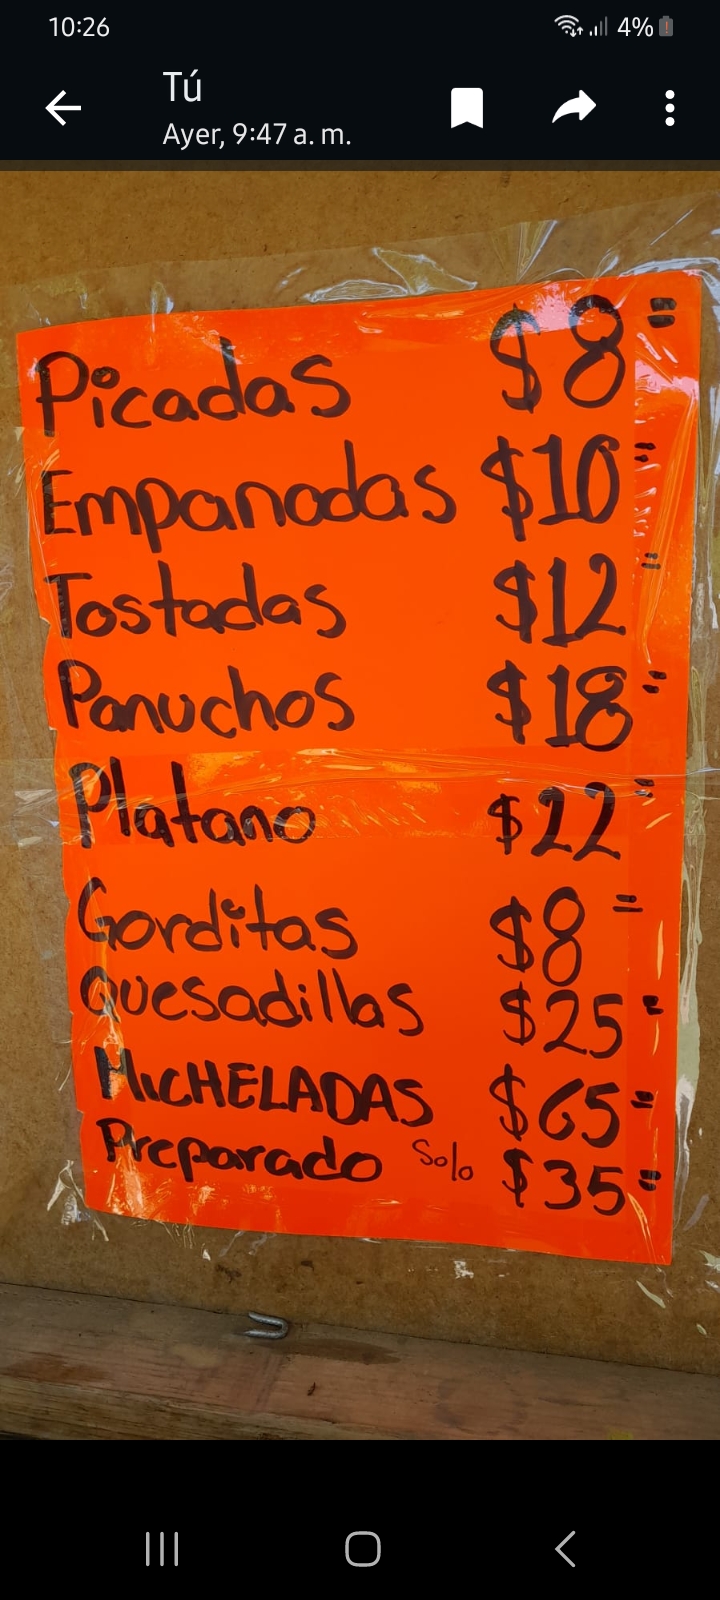 10:26 4%
Tú
Ayer, 9:47 a. m.
Picadas $8=
Empanadas $10=
Tostadas $12=
Panuchos $18=
Platano $22=
Gorditas $8=
Quesadillas $25=
MicHELADAS $65=
Preparado Solo $35=